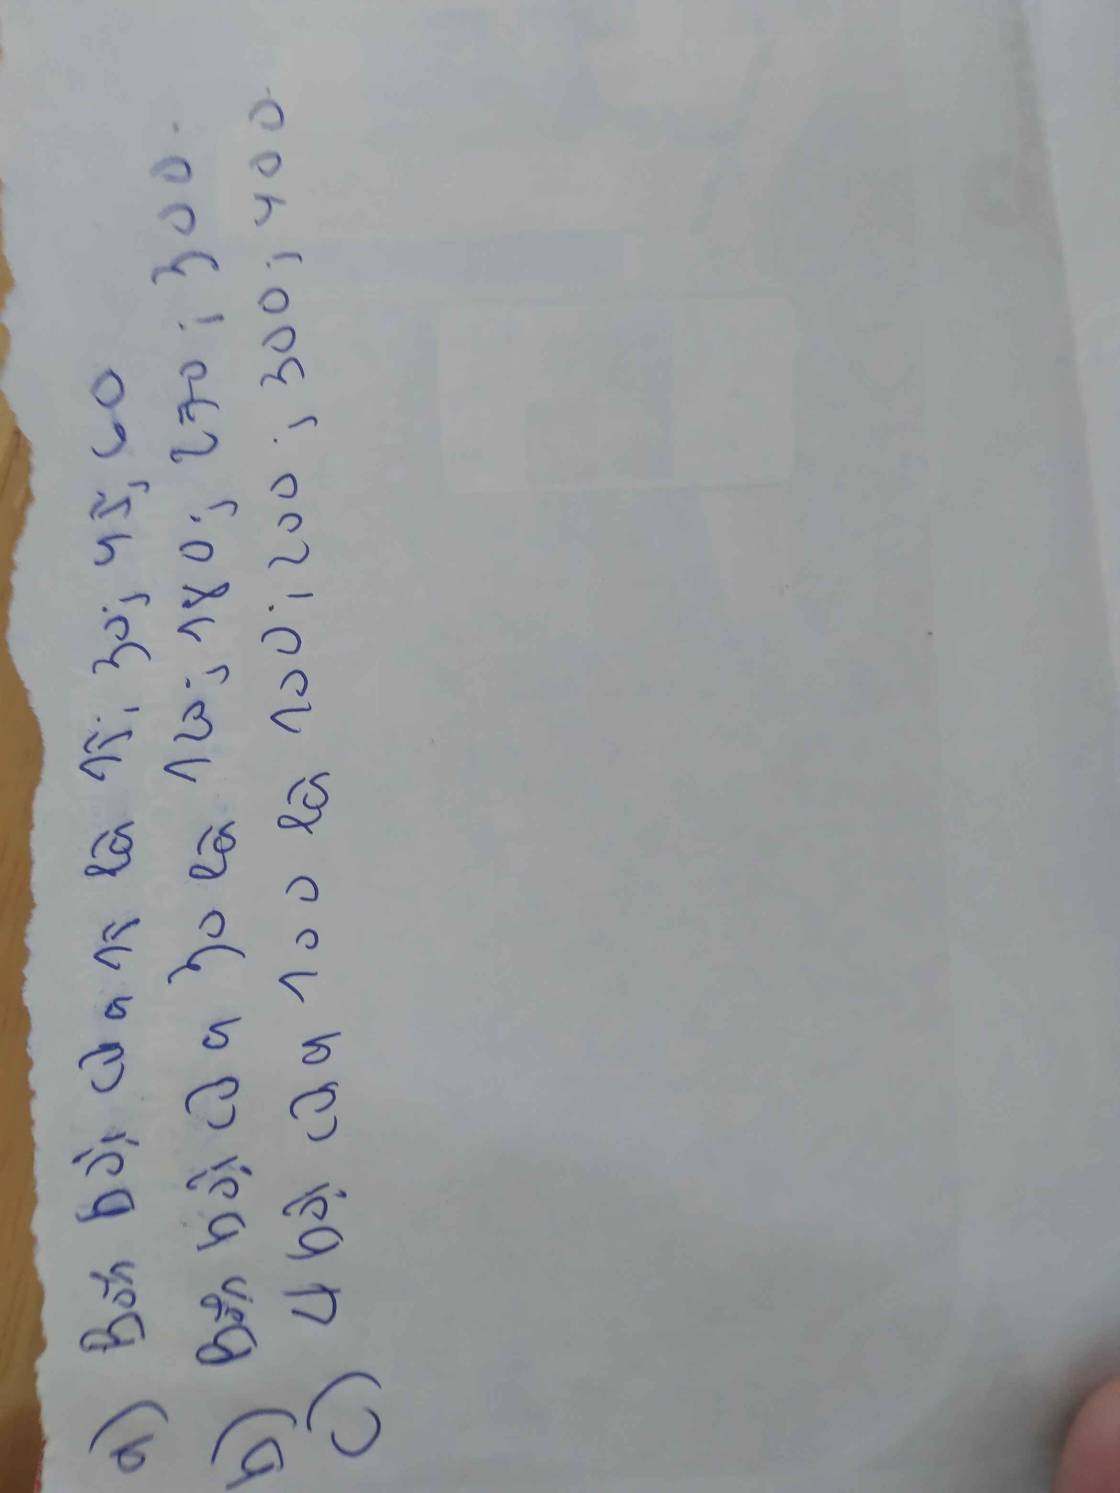 a) Bốn bội của 15 là 15; 30; 45; 60
b) Bốn bội của 30 là 120; 180; 270; 300.
c) 4 bội của 100 là 100; 200; 300; 400